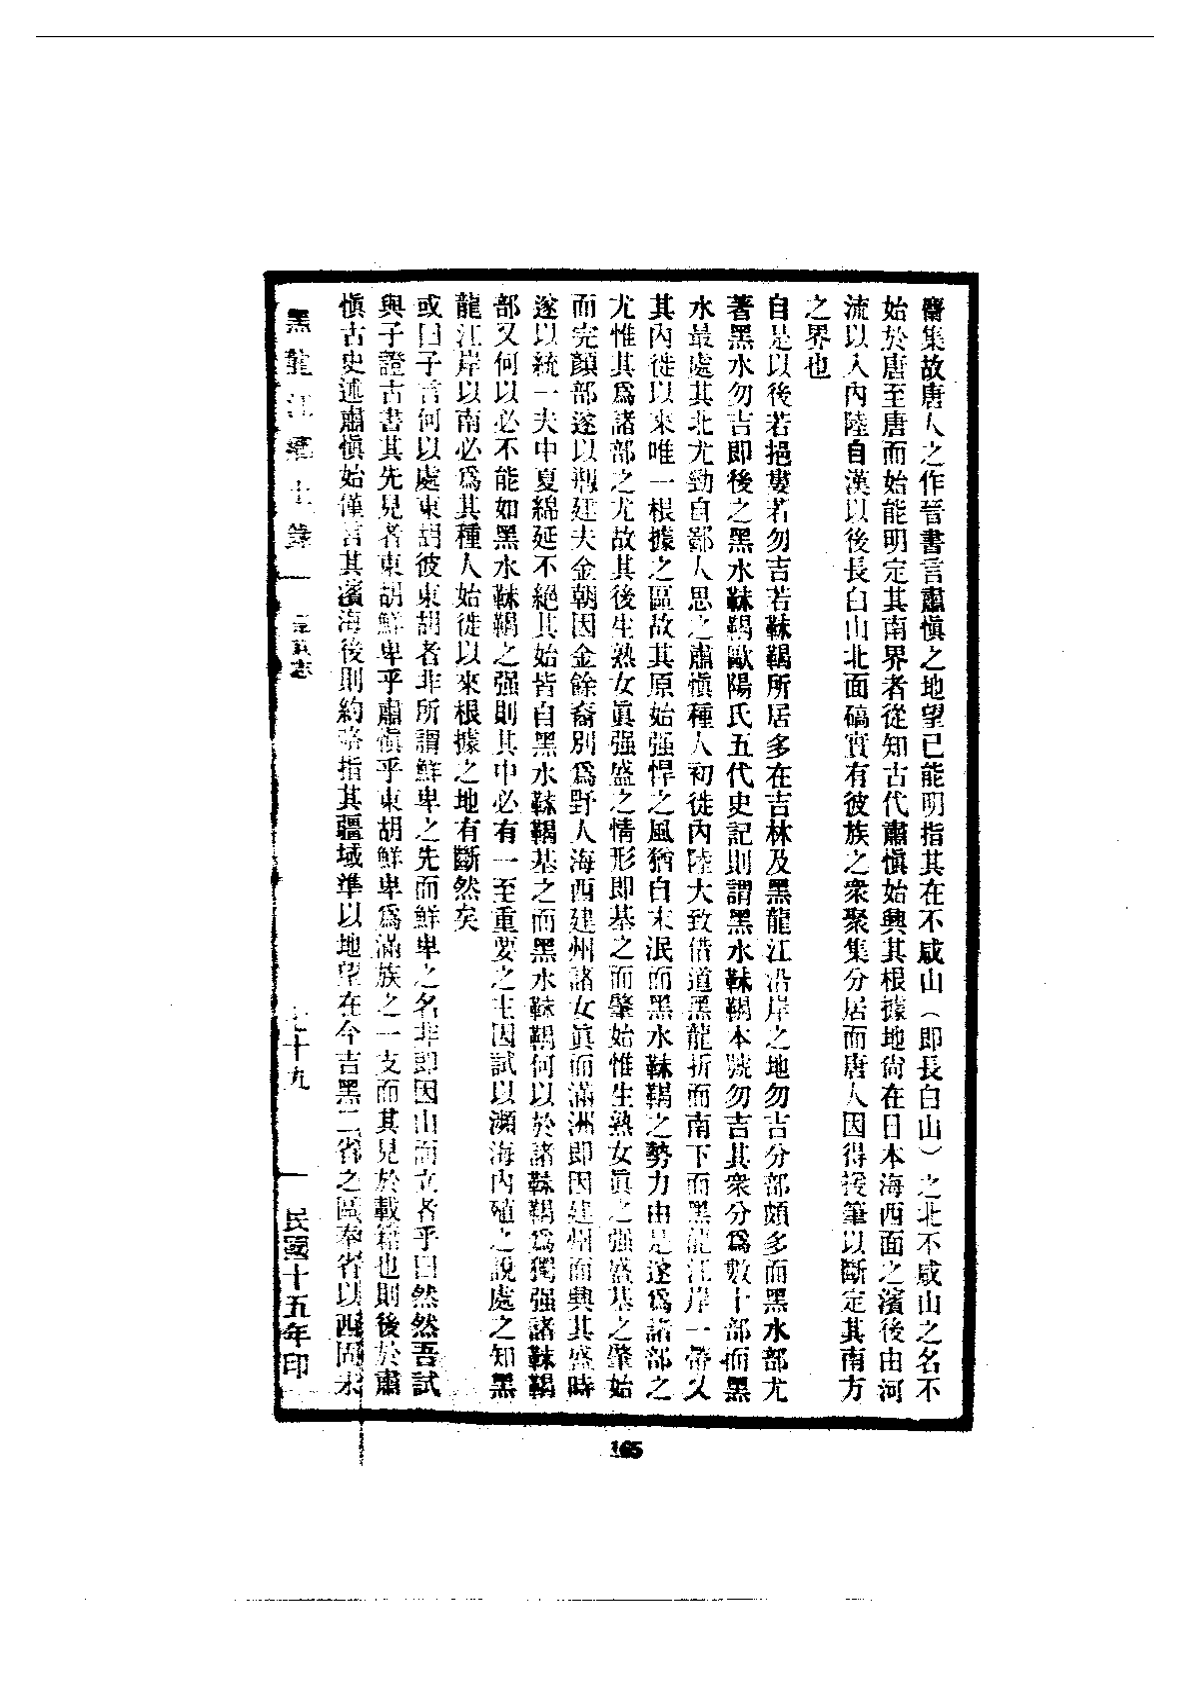 麕集故唐人之作晉書言肅愼之地望已能明指其在不咸山(即長白山)之北不咸山之名不
始於唐至唐而始能明定其南界者從知古代肅愼始興其根據地尙在日本海西面之濱後由河
流以入內陸自漢以後長白山北面磽實有彼族之衆聚集分居而唐人因得援筆以斷定其南方
之界也
自是以後若挹婁若勿吉若靺鞨所居多在吉林及黑龍江沿岸之地勿吉分部頗多而黑水部尤
著黑水勿吉即後之黑水靺鞨歐陽氏五代史記則謂黑水靺鞨本號勿吉其衆分爲數十部而黑
水最處其北尤勁自鄙人思之肅愼種人初徙內陸大致借道黑龍折而南下而黑龍江岸一帶又
其內徙以來唯一根據之區故其原始强悍之風猶自未泯而黑水靺鞨之勢力由是遂爲諸部之
尤惟其爲諸部之尤故其後生熟女眞强盛之情形即基之而肇始惟生熟女眞之强盛基之肇始
而完顏部遂以刱建夫金朝因金餘裔別爲野人海西建州諸女眞而滿洲即因建州而興其盛時
遂以統一夫中夏綿延不絕其始皆自黑水靺鞨基之而黑水靺鞨何以於諸靺鞨爲獨强諸靺鞨
部又何以必不能如黑水靺鞨之强則其中必有一至重要之主因試以瀕海內殖之說處之知黑
龍江岸以南必爲其種人始徙以來根據之地有斷然矣
或曰子言何以處東胡彼東胡者非所謂鮮卑之先而鮮卑之名非即因山而立者乎曰然然吾試
與子證古書其先見者東胡鮮卑乎肅愼乎東胡鮮卑爲滿族之一支而其見於載籍也則後於肅
愼古史述肅愼始僅言其濱海後則約略指其疆域準以地望在今吉黑二省之區奉省以西固未
黑龍江鄉土錄 | 部族志 九十九 | 民國十五年印
165